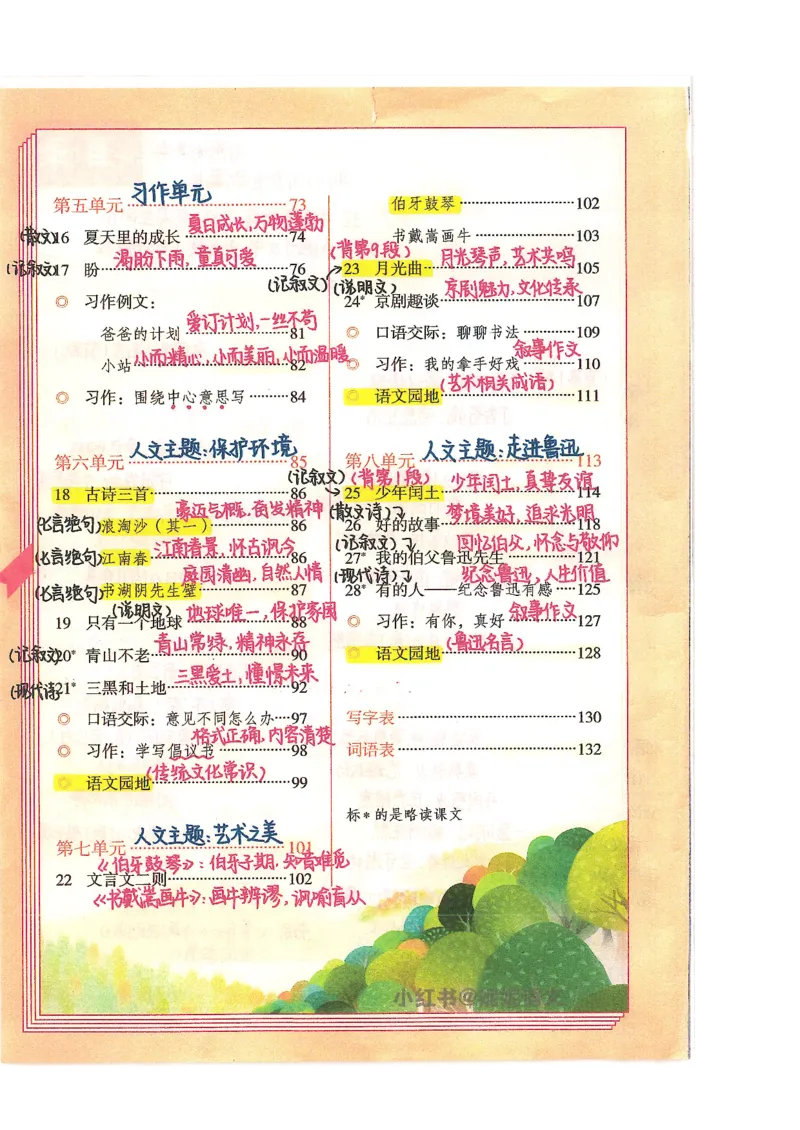 习作单元
第五单元 73
夏日成长,万物蓬勃
(散文)16 夏天里的成长 74
渴盼下雨,童真可爱
(记叙文)17 盼 76
◎ 习作例文:
爱订计划,一丝不苟
爸爸的计划 81
小而精心,小而美丽,小而温暖
小站 82
◎ 习作:围绕中心意思写 84
人文主题:保护环境
第六单元 85
18 古诗三首 86
豪迈气概,奋发精神
(七言绝句)浪淘沙(其一) 86
江南春景,怀古讽今
(七言绝句)江南春 86
庭园清幽,自然人情
(七言绝句)书湖阴先生壁 87
(说明文) 地球唯一,保护家园
19 只有一个地球 88
青山常绿,精神永存
(记叙文)20* 青山不老 90
三黑爱土,憧憬未来
(现代诗)21* 三黑和土地 92
◎ 口语交际:意见不同怎么办 97
格式正确,内容清楚
◎ 习作:学写倡议书 98
(传统文化常识)
◎ 语文园地 99
人文主题:艺术之美
第七单元 101
《伯牙鼓琴》:伯牙子期,知音难觅
22 文言文二则 102
《书戴嵩画牛》:画牛辨谬,讽喻盲从
伯牙鼓琴 102
书戴嵩画牛 103
(背第9段) 月光琴声,艺术共鸣
(记叙文) 23 月光曲 105
(说明文) 京剧魅力,文化传承
24* 京剧趣谈 107
◎ 口语交际:聊聊书法 109
叙事作文
◎ 习作:我的拿手好戏 110
(艺术相关成语)
◎ 语文园地 111
人文主题:走进鲁迅
第八单元 113
(记叙文) (背第1段) 少年闰土,真挚友谊
25 少年闰土 114
(散文诗) 梦境美好,追求光明
26 好的故事 118
(记叙文) 回忆伯父,怀念与敬仰
27* 我的伯父鲁迅先生 121
(现代诗) 纪念鲁迅,人生价值
28* 有的人——纪念鲁迅有感 125
叙事作文
◎ 习作:有你,真好 127
(鲁迅名言)
◎ 语文园地 128
写字表 130
词语表 132
标*的是略读课文
小红书@